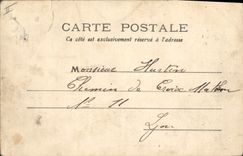 CARTE POSTALE
Ce côté est exclusivement réservé à l'adresse
Monsieur
Chemin de Croix
No 11
Lyon